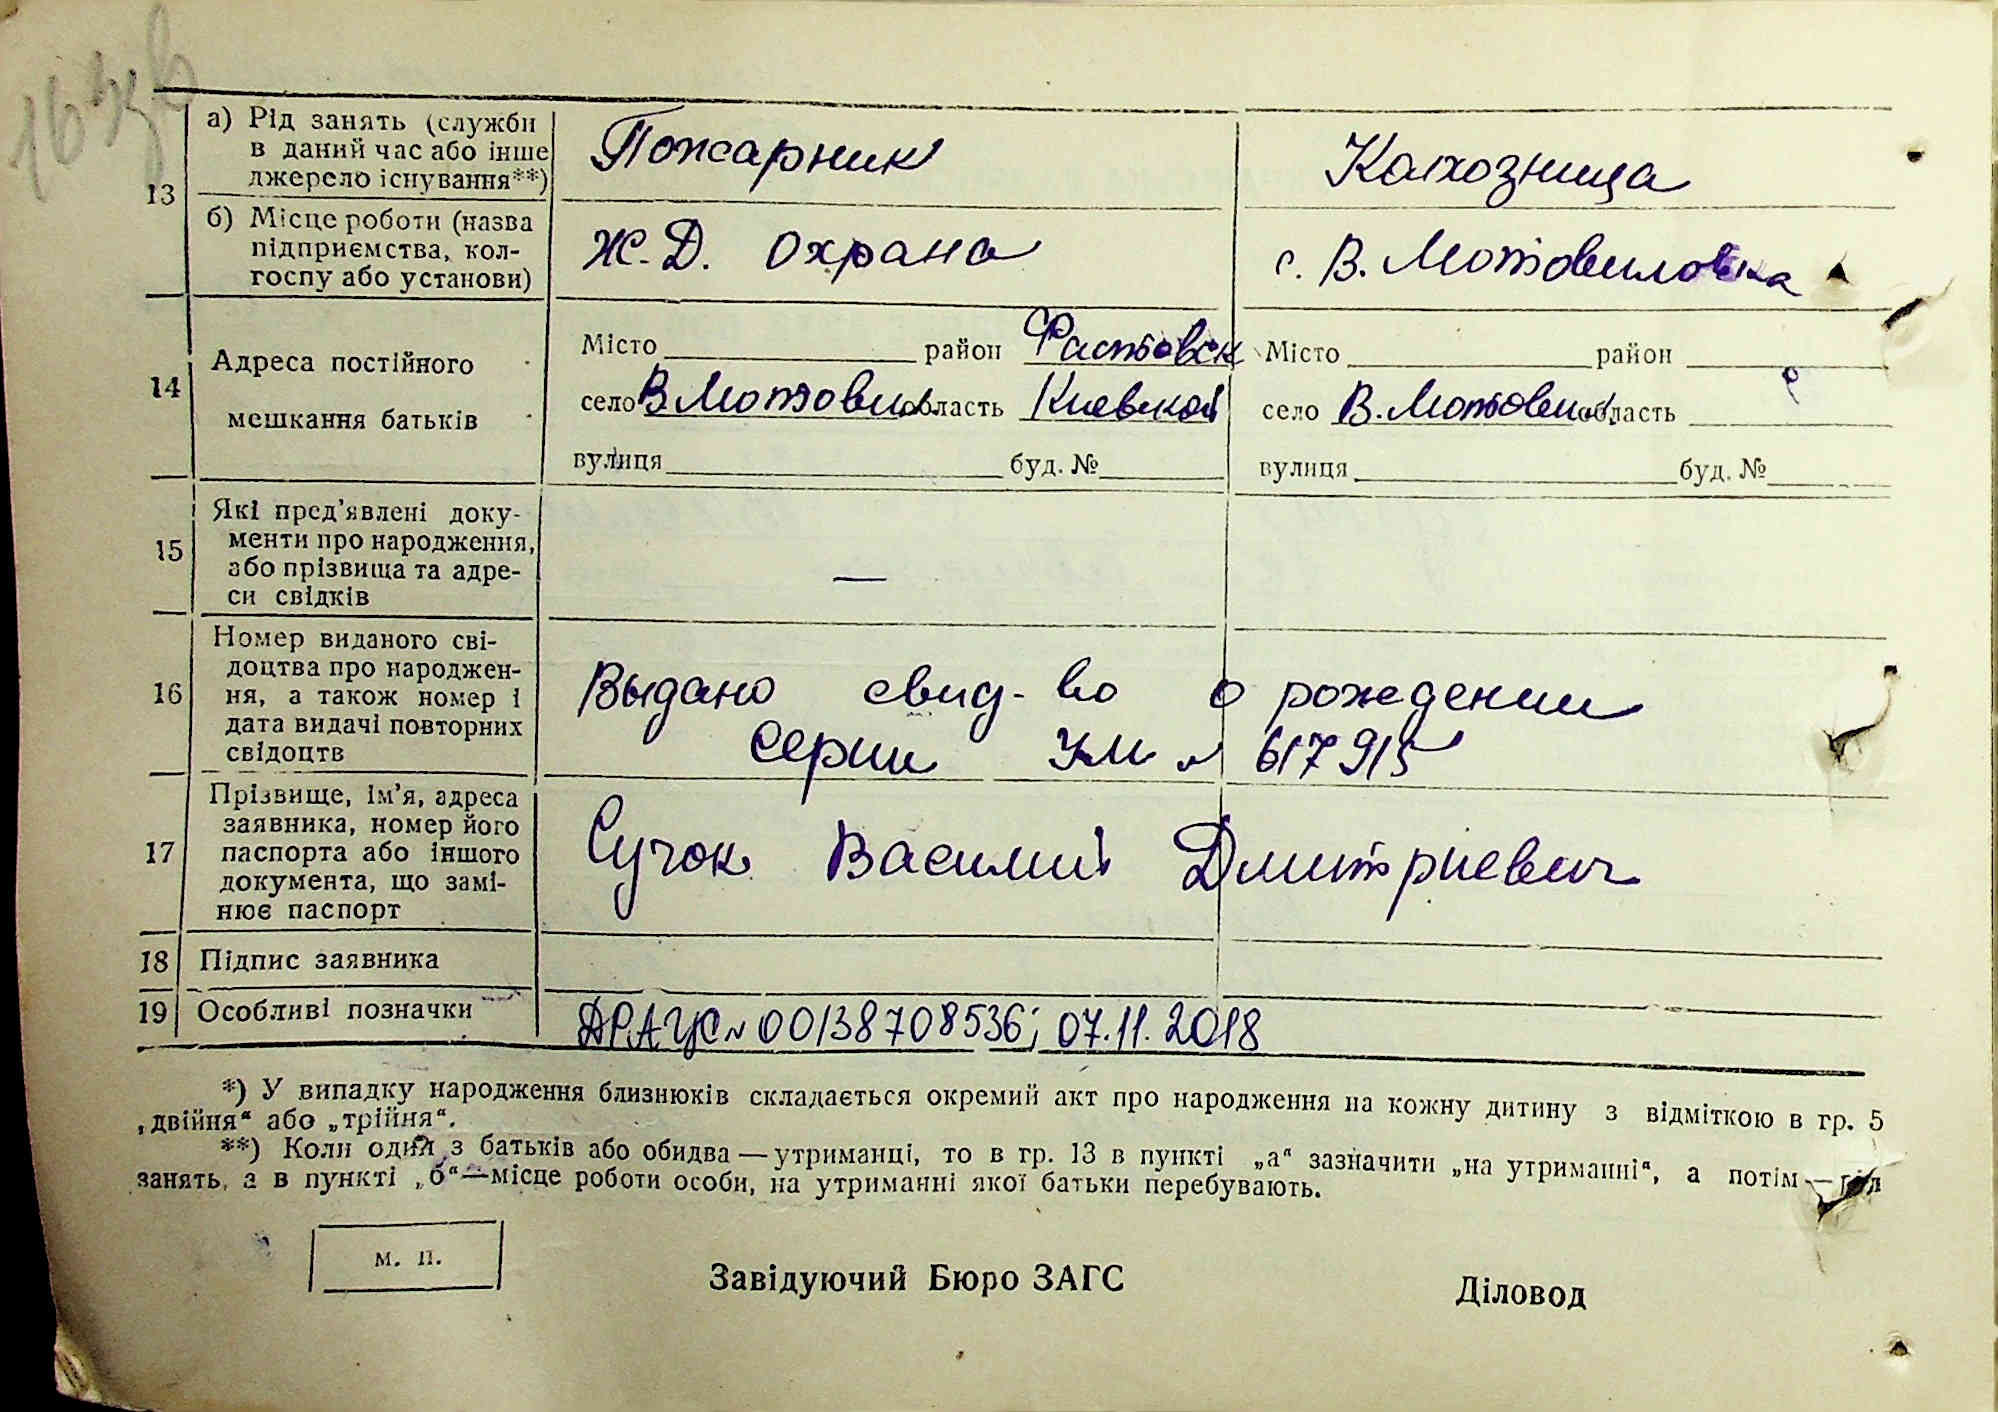 13
а) Рід занять (служби
в даний час або інше
джерело існування**)
Пожарник
Колхозница
б) Місце роботи (назва
підприємства, кол-
госпу або установи)
Ж.Д. охрана
с. В. Мотовиловка
14
Адреса постійного
мешкання батьків
Місто район Фастовск
село В Мотовил область Киевской
вулиця буд. №
Місто район
село В. Мотовил область
вулиця буд. №
15
Які пред’явлені доку-
менти про народження,
або прізвища та адре-
си свідків
—
16
Номер виданого сві-
доцтва про народжен-
ня, а також номер і
дата видачі повторних
свідоцтв
Выдано свид-во о рождении
Серии УМ № 617915
17
Прізвище, ім’я, адреса
заявника, номер його
паспорта або іншого
документа, що замі-
нює паспорт
Сучок Василий Дмитриевич
18 Підпис заявника
19 Особливі позначки
ДРАЦС № 00138708536; 07.11.2018
*) У випадку народження близнюків складається окремий акт про народження на кожну дитину з відміткою в гр. 5
„двійня“ або „трійня“.
**) Коли один з батьків або обидва—утриманці, то в гр. 13 в пункті „а“ зазначити „на утриманні“, а потім—рід
занять, а в пункті „б“—місце роботи особи, на утриманні якої батьки перебувають.
м. п.
Завідуючий Бюро ЗАГС
Діловод